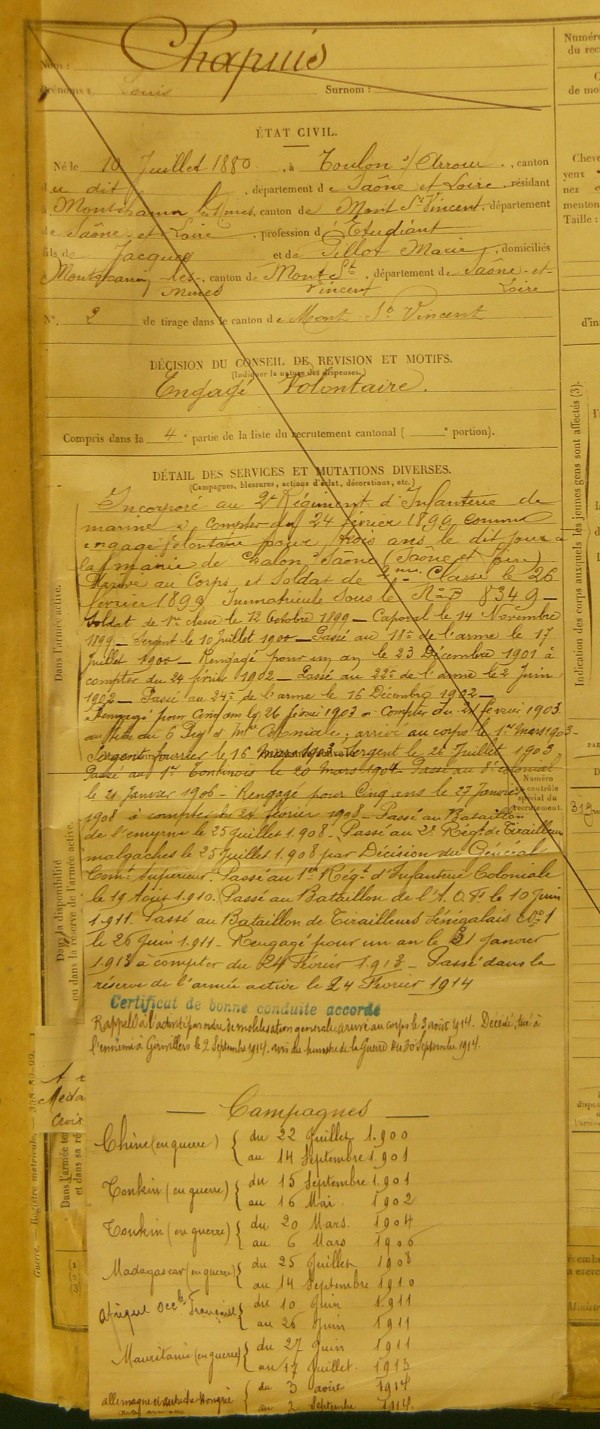 Chapuis
Nom :
Numéro
du recru
Prénoms : Louis Surnom :
ÉTAT CIVIL.
Né le 10 Juillet 1880, à Toulon s/ Arroux, canton
du dit, département de Saône et Loire, résidant
à Montchanin les Mines, canton de Mont St Vincent, département
de Saône et Loire, profession d'Etudiant
fils de Jacques et de Pillot Marie, domiciliés
Montchanin les Mines, canton de Mont St Vincent, département de Saône-et-Loire
N° 2 de tirage dans le canton de Mont St Vincent
DÉCISION DU CONSEIL DE REVISION ET MOTIFS.
(Indiquer la nature des dispenses.)
Engagé Volontaire.
Compris dans la 4e partie de la liste du recrutement cantonal ( e portion).
DÉTAIL DES SERVICES ET MUTATIONS DIVERSES.
(Campagnes, blessures, actions d'éclat, décorations, etc.)
Incorporé au 2e Régiment d'Infanterie de
marine à compter du 24 février 1899 comme
engagé volontaire pour trois ans le dit jour à
la mairie de Chalon s/ Saône (Saône et Loire)
Arrivé au Corps et Soldat de 2eme Classe le 26
février 1899 Immatriculé sous le No 8349
Soldat de 1re Classe le 12 Octobre 1899 - Caporal le 14 Novembre
1899 - Sergent le 10 Juillet 1900 - Passé au 18e de l'arme le 17
Juillet 1900 - Rengagé pour un an le 23 Décembre 1901 à
compter du 24 février 1902 - Passé au 22e de l'arme le 2 Juin
1902 - Passé au 24e de l'arme le 16 Décembre 1902 -
Rengagé pour Cinq ans le 26 février 1903 à Compter du 24 février 1903
au 6 Regt d'Infie Coloniale, arrivé au corps le 1er Mars 1903 -
Sergent fourrier le 16 Mars 1903, Sergent le 21 Juillet 1903,
Passé au 1er Tonkinois le 20 Mars 1904 Passé au 8e colonial
le 21 Janvier 1906 - Rengagé pour Cinq ans le 27 Janvier
1908 à compter du 24 février 1908 - Passé au Bataillon
de l'emyrne le 25 juillet 1.908 - Passé au 2e Régt de Tirailleurs
malgaches le 25 Juillet 1.908 par Décision du Général
Commt Supérieur. Passé au 1er Régt d'Infanterie Coloniale
le 19 Août 1.910. Passé au Bataillon de l'A.O.F. le 10 Juin
1.911. Passé au Bataillon de Tirailleurs Sénégalais No 1
le 26 Juin 1.911 - Rengagé pour un an le 31 Janvier
1.913 à compter du 24 Février 1.913 - Passé dans la
réserve de l'armée active le 24 Février 1914
Certificat de bonne conduite accordé
Rappelé à l'activité par ordre de mobilisation générale, arrivé au corps le 3 août 1914. Décédé, tué à
l'ennemi à Gerbéviller le 2 Septembre 1914. avis du ministre de la Guerre du 30 Septembre 1914.
Campagnes
Chine (en guerre) { du 22 Juillet 1.900
au 14 Septembre 1.901
Tonkin (en guerre) { du 15 Septembre 1.901
au 16 Mai 1902
Tonkin (en guerre) { du 20 Mars 1904
au 6 Mars 1906
Madagascar (en guerre) { du 25 Juillet 1908
au 14 Septembre 1910
Afrique Occle Française { du 10 Juin 1.911
au 26 Juin 1911
Mauritanie (en guerre) { du 27 Juin 1911
au 17 Juillet 1913
allemagne et autriche-Hongrie { du 3 août 1914
au 2 Septembre 1914.
Dans l'armée active.
Dans la disponibilité
ou dans la réserve de l'armée active.
Numéro
au contrôle
spécial du
recrutement.
Indication des corps auxquels les jeunes gens sont affectés (3).
Taille :